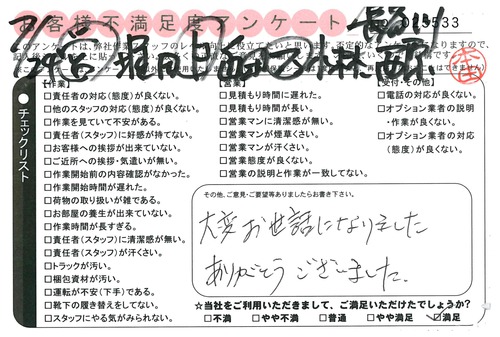 お客様不満足度アンケート
【作業】
□責任者の対応(態度)が良くない。
□他のスタッフの対応(態度)が良くない。
□作業を見ていて不安がある。
□責任者(スタッフ)に好感が持てない。
□お客様への挨拶が出来ていない。
□ご近所への挨拶・気遣いが無い。
□作業開始前の内容確認がなかった。
□作業開始時間が遅れた。
□荷物の取り扱いが雑である。
□お部屋の養生が出来ていない。
□作業時間が長すぎる。
□責任者(スタッフ)に清潔感が無い。
□責任者(スタッフ)が汗くさい。
□トラックが汚い。
□梱包資材が汚い。
□運転が不安(下手)である。
□靴下の履き替えをしてない。
□スタッフにやる気がみられない。
チェックリスト
【営業】
□見積もり時間に遅れた。
□見積もり時間が長い。
□営業マンに清潔感が無い。
□営業マンが煙草くさい。
□営業マンが汗くさい。
□営業態度が良くない。
□営業の説明と作業が一致してない。
【受付・その他】
□電話の対応が良くない。
□オプション業者の説明
・作業が良くない。
□オプション業者の対応
(態度)が良くない。
その他、ご意見・ご要望等ありましたらお書き下さい。
大変お世話になりました
ありがとうございました.
☆当社をご利用いただきまして、ご満足いただけたでしょうか?
□不満 □やや不満 □普通 □やや満足 ☑満足